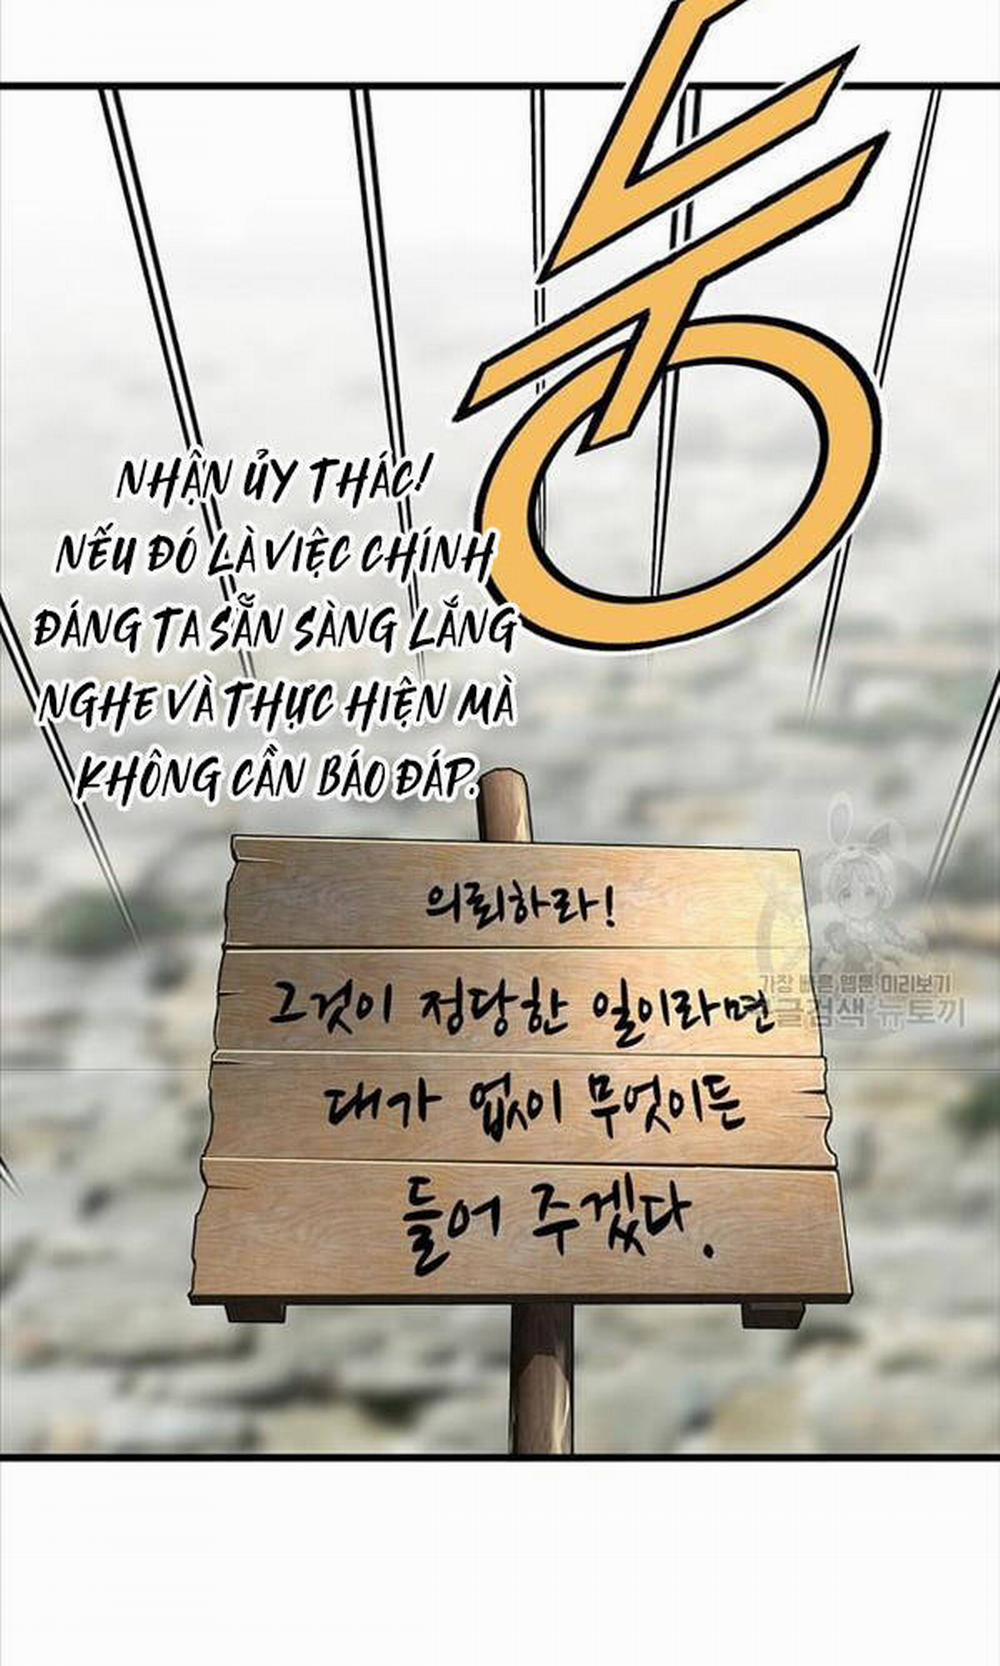 둥
NHẬN ỦY THÁC!
NẾU ĐÓ LÀ VIỆC CHÍNH
ĐÁNG TA SẴN SÀNG LẮNG
NGHE VÀ THỰC HIỆN MÀ
KHÔNG CẦN BÁO ĐÁP.
의뢰하라!
그것이 정당한 일이라면
대가 없이 무엇이든
들어 주겠다.
가장 빠른 웹툰 미리보기
구글검색 뉴토끼